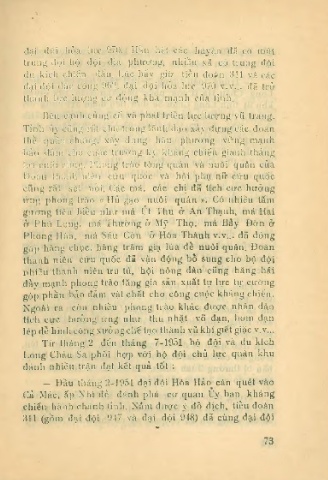 đại đội hỏa lực 950. Hầu hết các huyện đã có một
trung đội bộ đội địa phương, nhiều xã có trung đội
du kích chiến đấu. Lúc bấy giờ tiểu đoàn 311 và các
đại đội
thành lực lượng cơ động khá mạnh của tỉnh.
Bên cạnh củng cố và phát triển lực lượng vũ trang,
Tỉnh ủy cũng rất chú trọng lãnh đạo xây dựng các đoàn
thể quần chúng, xây dựng hậu phương vững mạnh
bảo đảm cho cuộc trường kỳ kháng chiến giành thắng
Phong trào tòng quân và nuôi quân của
Đoàn thanh niên cứu quốc và hội phụ nữ cứu quốc
cũng rất sôi nổi. Các má, các chị đã tích cực hưởng
ứng phong trào «Hũ gạo nuôi quân». Có nhiều tấm
gương tiêu biểu như má Út Thu ở An Thạnh, má Hai
ở Phú Long, má Thường ở Mỹ Thọ, má Bảy Đón ở
Phong Hòa, má Sáu Còn ở Hòa Thành v.v... đã đóng
góp hàng chục, hàng trăm giạ lúa để nuôi quân. Đoàn
thanh niên cứu quốc đã vận động bổ sung cho bộ đội
nhiều thanh niên ưu tú, hội nông dân cũng hăng hái
đẩy mạnh phong trào tăng gia sản xuất tự lực tự cường
góp phần bảo đảm vật chất cho công cuộc kháng chiến.
Ngoài ra còn nhiều phong trào khác được nhân dân
tích cực hưởng ứng như thu nhặt vỏ đạn, bom đạn
lép để binh công xưởng chế tạo thành vũ khí giết giặc v.v...
Từ tháng 2 đến tháng 7-1951 bộ đội và du kích
Long Châu Sa phối hợp với bộ đội chủ lực quân khu
đánh nhiều trận đạt kết quả tốt :
— Đầu tháng 2-1951 đại đội Hòa Hảo càn quét vào
Cả Mác, ấp Nhì để đánh phá cơ quan Ủy ban kháng
chiến hành chánh tỉnh. Nắm được ý đồ địch, tiểu đoàn
311 (gồm đại đội 947 và đại đội 948) đã cùng đại đội
73